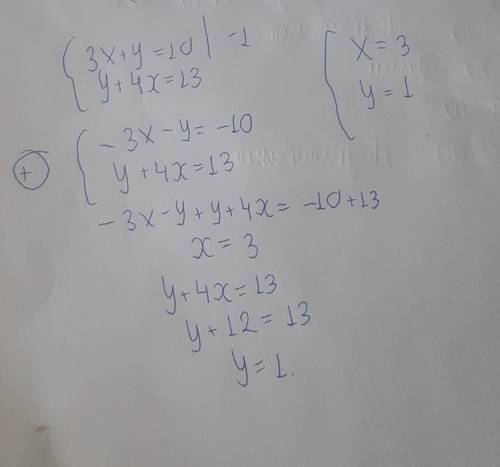 3x+y=10 | · -1
y+4x=13
x=3
y=1
+
-3x-y=-10
y+4x=13
-3x-y+y+4x=-10+13
x=3
y+4x=13
y+12=13
y=1.